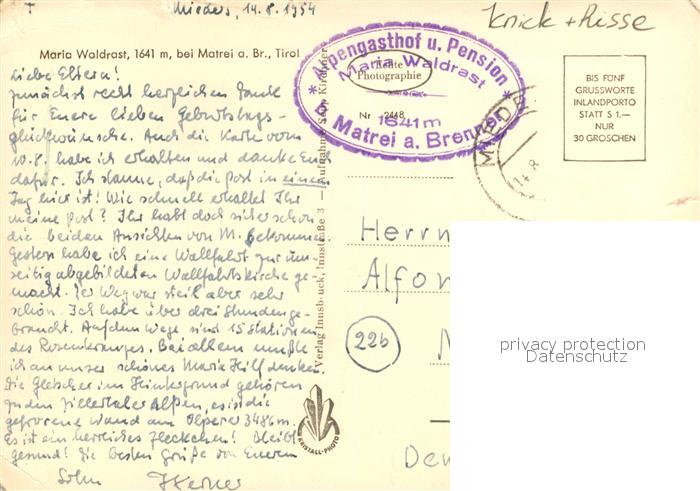 Mieders, 14.8.1954
Knick + Risse
Maria Waldrast, 1641 m, bei Matrei a. Br., Tirol
Liebe Eltern!
zunächst recht herzlichen Dank
für Euere lieben Geburtstags-
glückwünsche. Auch die Karte vom
10.8. habe ich erhalten und danke Euch
dafür. Ich staune, daß die Post in einem
Tag hier ist! Wie schnell erhaltet Ihr
meine Post? Ihr habt doch sicher schon
die beiden Ansichten von M. bekommen.
Gestern habe ich eine Wallfahrt zur um-
seitig abgebildeten Wallfahrtskirche ge-
macht. Der Weg war steil aber sehr
schön. Ich habe über drei Stunden ge-
braucht. Auf dem Wege sind 15 Stationen
des Rosenkranzes. Bei allem mußte
ich an unser schönes Maria Hilf denken.
Die Gletscher im Hintergrund gehören
zu den Zillertaler Alpen, es ist die
gefrorene Wand am Olperer 3486m.
Es ist ein herrliches Fleckchen! Bleibt
gesund! Die besten Grüße von Euerem
Sohn
Alpengasthof u. Pension
Maria Waldrast
1641 m
b. Matrei a. Brenner
Echte
Photographie
Nr 2448
Verlag Innsbruck, Innstraße 3 — Aufnahme Sepp Kirchner
KRISTALL-PHOTO
BIS FÜNF
GRUSSWORTE
INLANDPORTO
STATT S 1.—
NUR
30 GROSCHEN
Herrn
Alfon
22b
privacy protection
Datenschutz